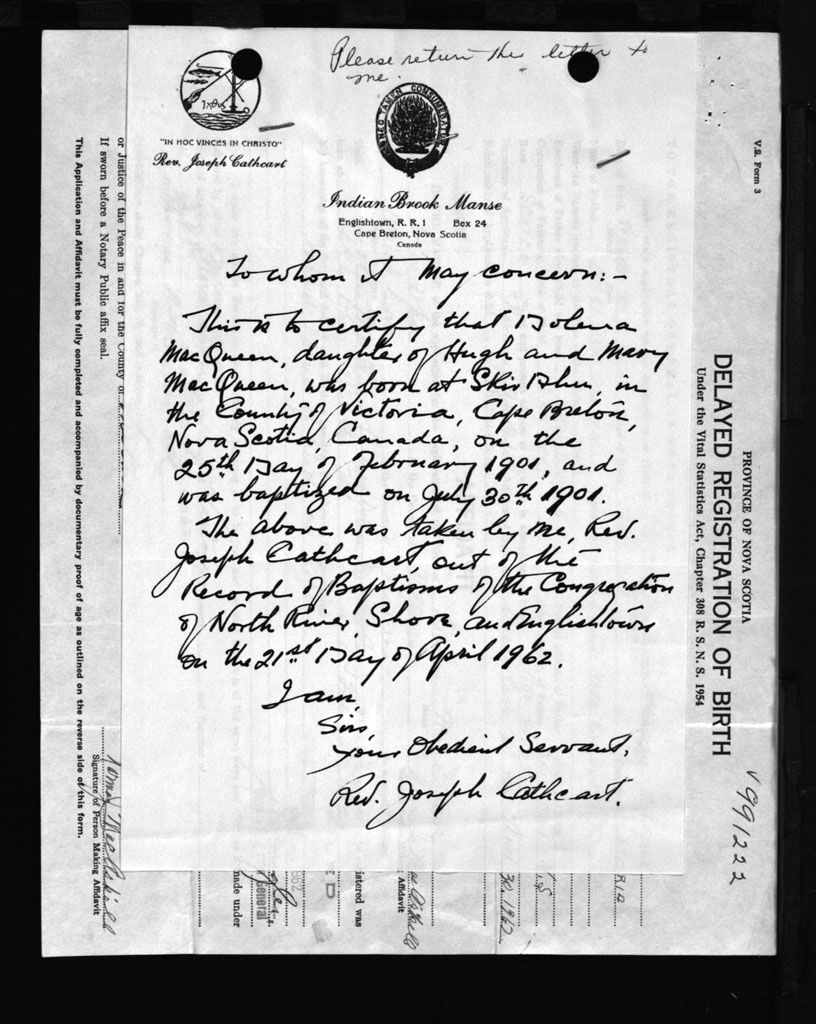 Please return this letter to
me.
Ιχθυς
NEC TAMEN CONSUMEBATUR
"IN HOC VINCES IN CHRISTO"
Rev. Joseph Cathcart
Indian Brook Manse
Englishtown, R. R. 1 Box 24
Cape Breton, Nova Scotia
Canada
To whom it May concern:-
This is to certify that Dolena
MacQueen, daughter of Hugh and Mary
MacQueen, was born at Skir Dhu, in
the County of Victoria, Cape Breton,
Nova Scotia, Canada, on the
25th Day of February 1901, and
was baptized on July 30th 1901.
The above was taken by me, Rev.
Joseph Cathcart, out of the
Record of Baptisms of the Congregation
of North River, Shore, and Englishtown
on the 21st Day of April 1962.
I am,
Sirs,
Your Obedient Servant,
Rev. Joseph Cathcart.
V.S. Form 3
PROVINCE OF NOVA SCOTIA
DELAYED REGISTRATION OF BIRTH
Under the Vital Statistics Act, Chapter 308 R. S. N. S. 1954
V 991222
or Justice of the Peace in and for the County of
If sworn before a Notary Public affix seal.
This Application and Affidavit must be fully completed and accompanied by documentary proof of age as outlined on the reverse side of this form.
Signature of Person Making Affidavit
R.I.A.
30, 1962
Affidavit
istered was
D
962
General
made under